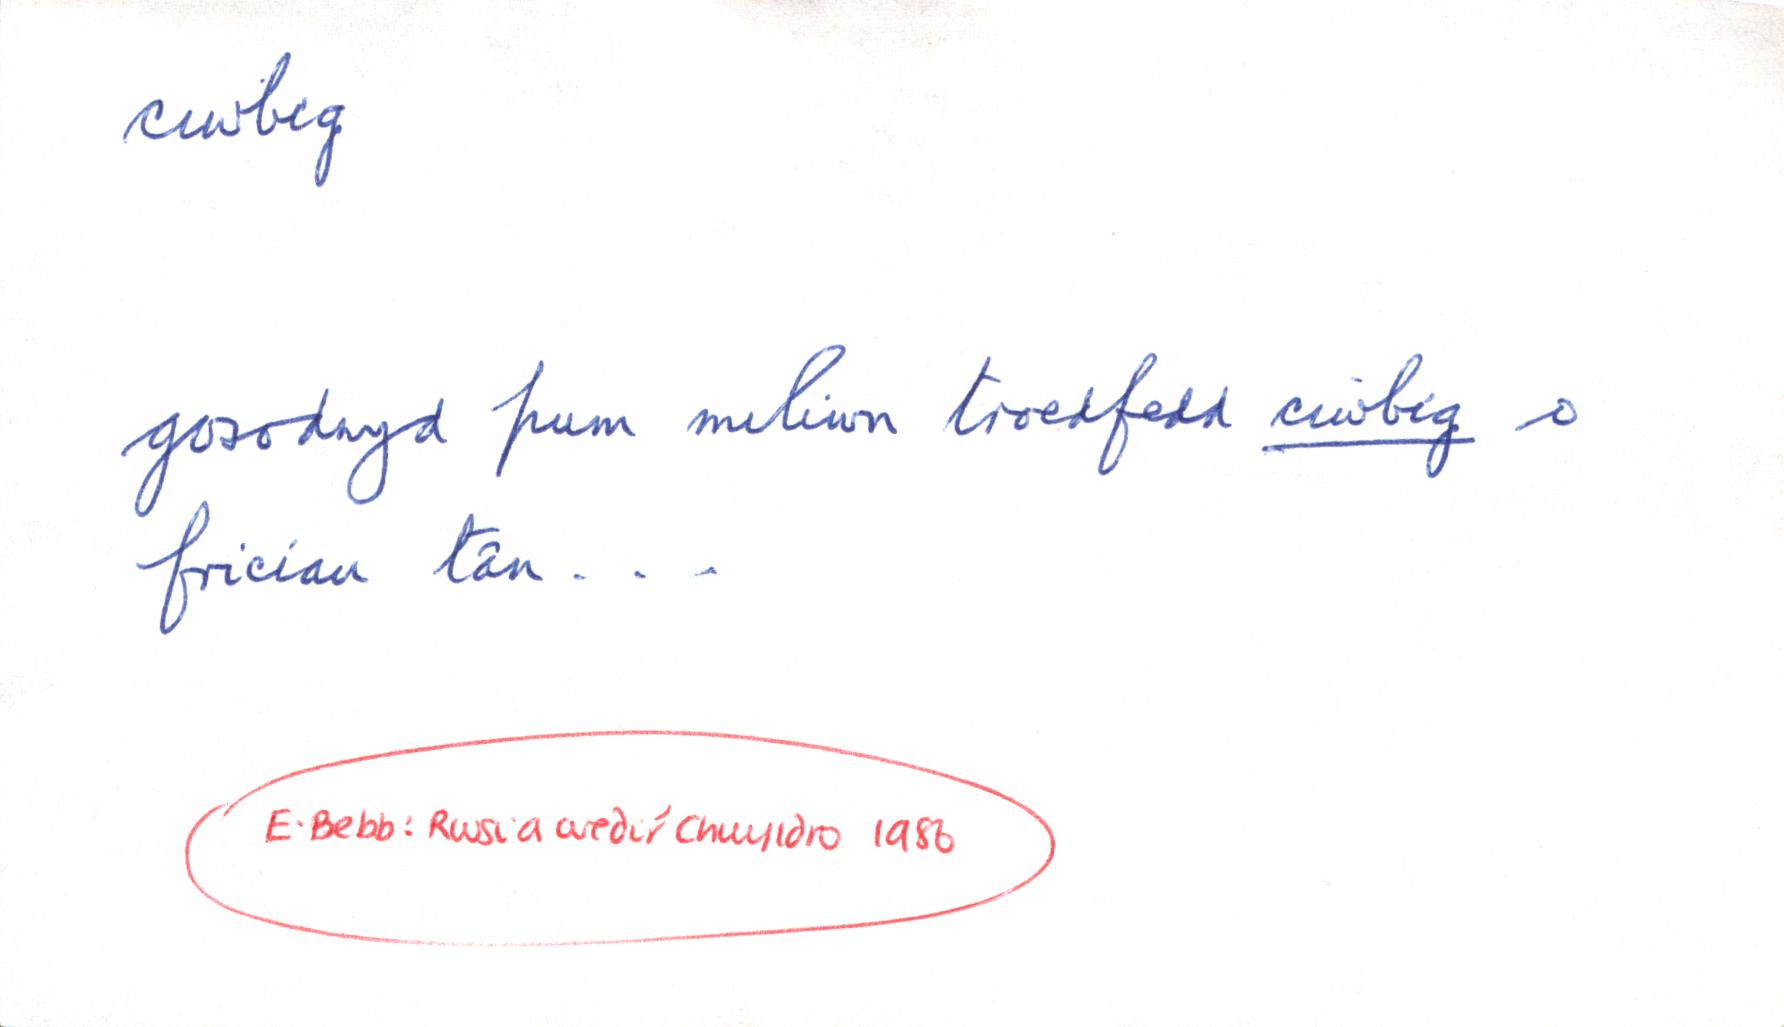 ciwbig
gosodwyd pum miliwn troedfedd ciwbig o
friciau tân . . .
E. Bebb: Rwsia wedi'r Chwyldro 1986